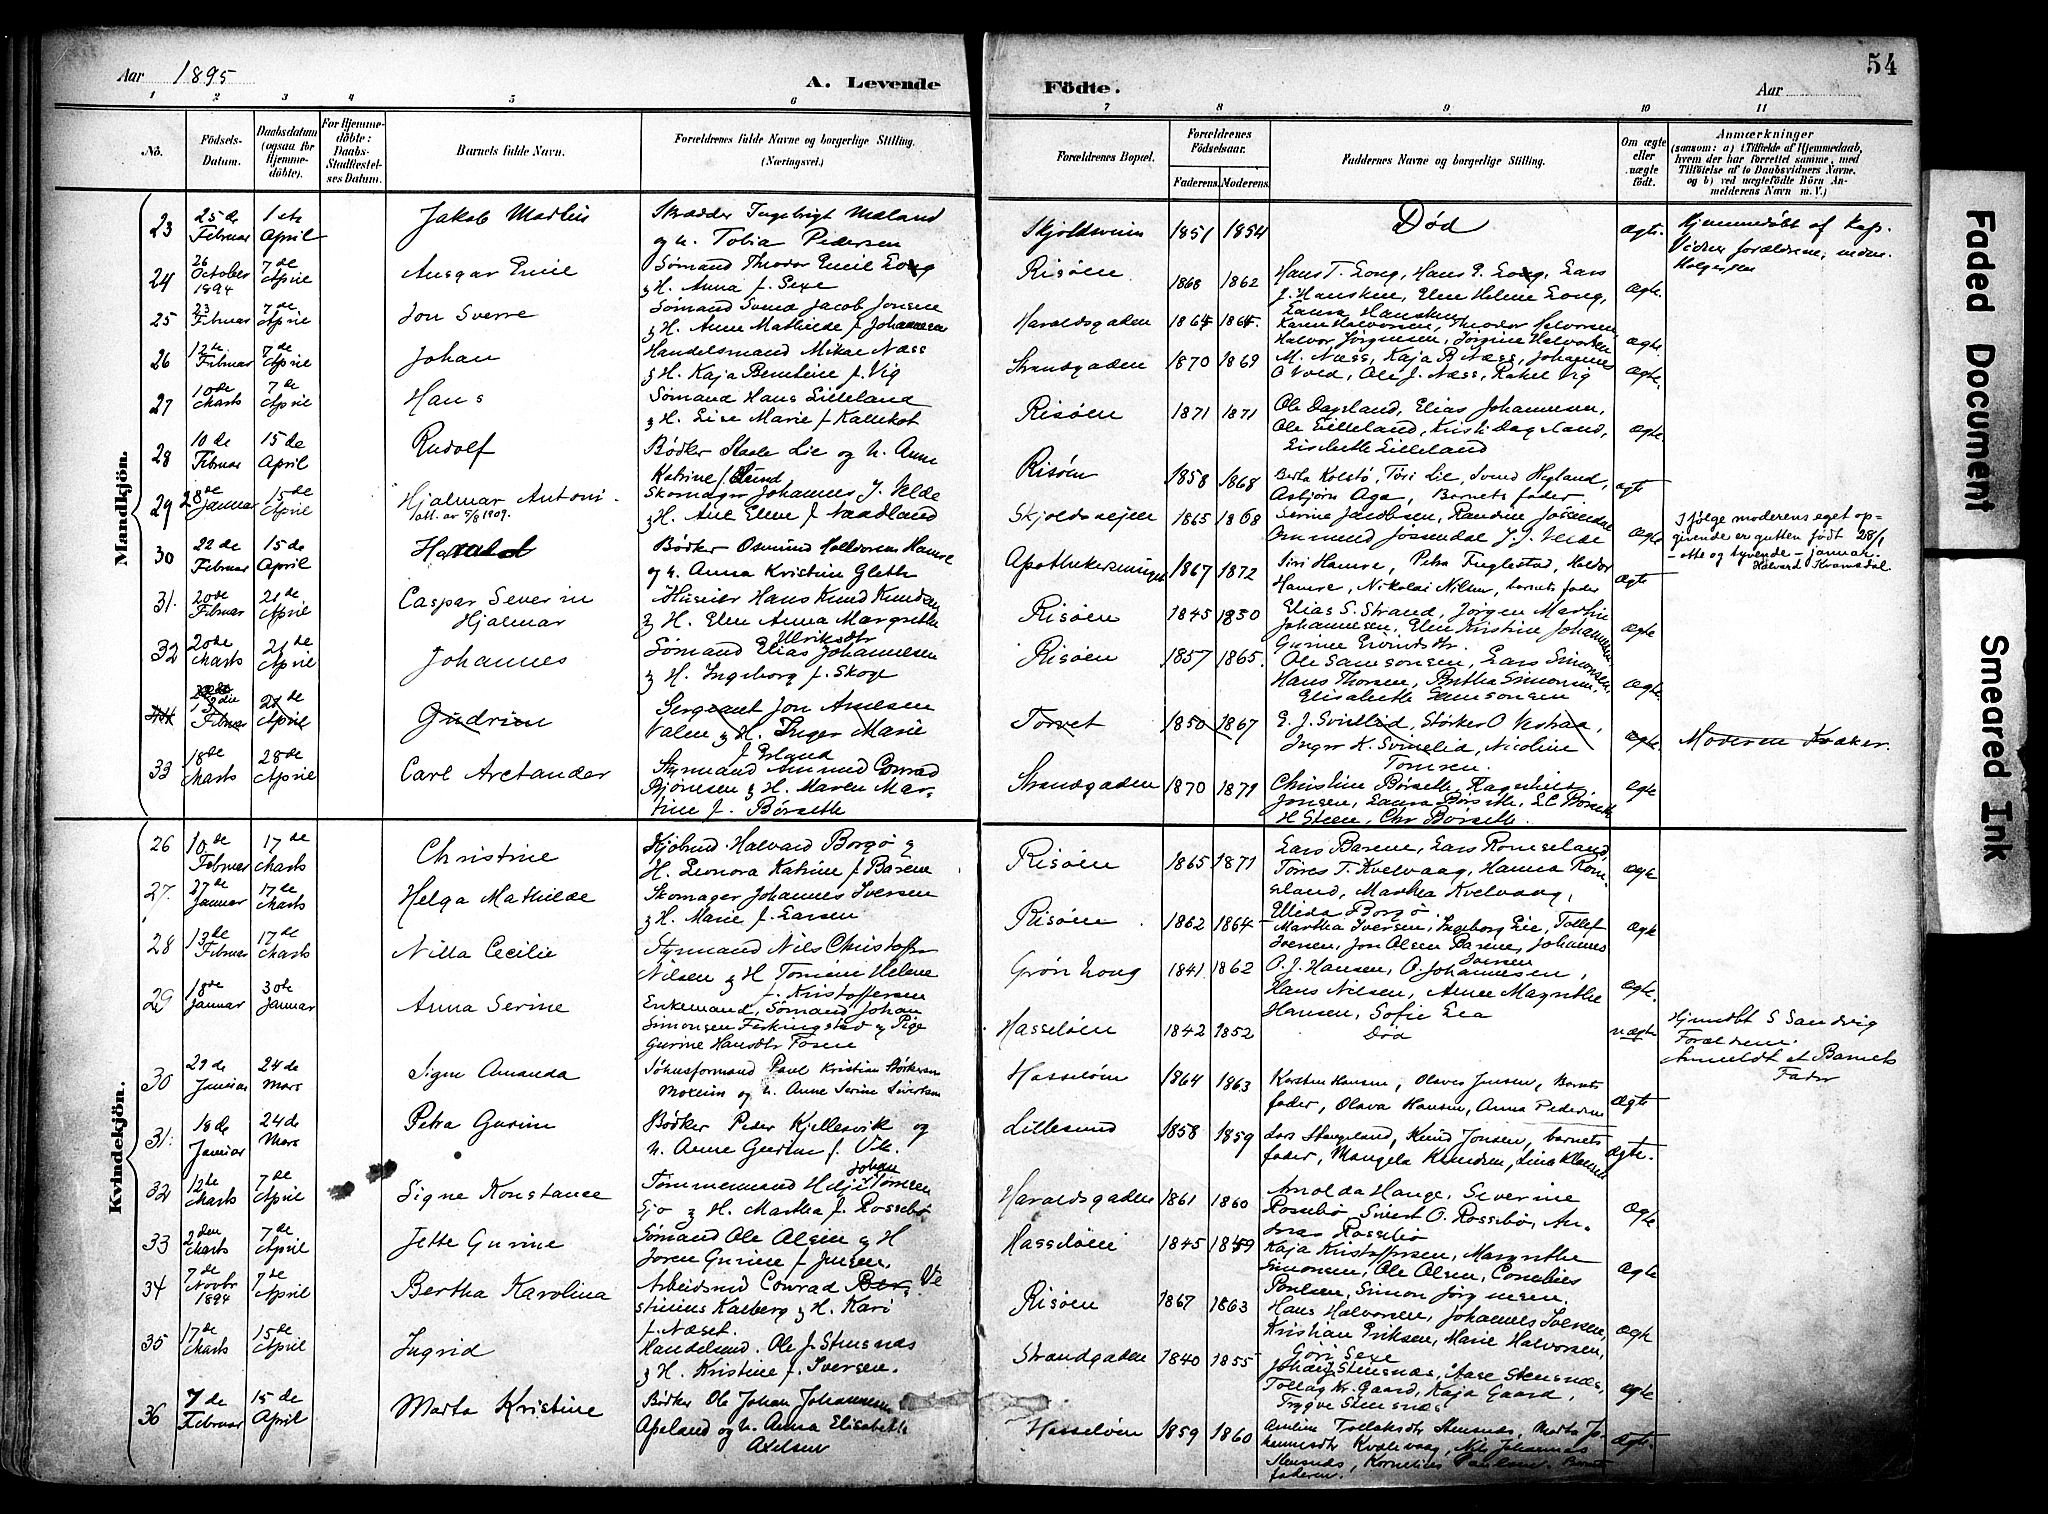 54
Aar 1895
A. Levende
Födte.
Aar
1 2 3 4 5 6 7 8 9 10 11
No.
Födsels-Datum.
Daabsdatum (ogsaa for Hjemme-döbte).
For Hjemme-döbte: Daabs-Stadfæstel-ses Datum.
Barnets fulde Navn.
Forældrenes fulde Navne og borgerlige Stilling. (Næringsvei.)
Forældrenes Bopæl.
Forældrenes Födselsaar.
Faderens. Moderens.
Faddernes Navne og borgerlige Stilling.
Om ægte eller uægte födt.
Anmærkninger
(saasom: a) i Tilfælde af Hjemmedaab,
hvem der har forrettet samme, med
Tilföielse af to Daabsvidners Navne.
og b) ved uægtefödte Börn An-
melderens Navn m. V.)
Mandkjön.
23 25de Februar 1ste April Jakob Mathis Skrædder Ingebrigt Mæland
og h. Tobia Pedersen
Skjoldsveien 1851 1854 Död ægte. Hjemmedöbt af Kap.
Vidner forældrene, inden.
24 26 October 1894 7de April Ansgar Emil Sömand Theodor Emil Long
& H. Anna f. Sexe
Risöen 1868 1862 Hans T. Long, Hans P. Long, Lars
J. Hansken, Elen Helene Long,
Laura Hansken ægte.
25 23 Februar 7de April Jon Sverre Sömand Svend Jacob Jonsen
& H. Anne Mathilde f. Johannesen
Haraldsgaden 1864 1864. Karen Halvorsen, Theodor Halvorsen,
Halvor Jörgensen, Jörgine Halvorsen ægte.
26 12te Februar 7de April Johan Handelsmand Mikal Næss
& H. Kaja Bentine f. Vig
Strandgaden 1870 1869 M. Næss, Kaja B. Næss, Johannes
O Vold, Ole J. Næss, Rakel Vig ægte.
27 10de Marts 7de April Hans Sömand Hans Lilleland
& H. Lise Marie f. Kallekot
Risöen 1871 1871 Ole Dagsland, Elias Johannesen,
Ole Lilleland, Kristi Dagsland,
Lisebeth Lilleland ægte.
28 10de Februar 15de April Rudolf Bödker Staale Lie og h. Anne
Katrine f. Lund
Risöen 1858 1868 Berta Kolstö, Töri Lie, Svend Hegland,
Asbjörn Aga, Barnets fader ægte
29 28de Januar 15de April Hjalmar Antoni
att. av 5/8 1909.
Skomager Johannes J. Velde
& H. Ane Elene f. Naadland
Skjoldsveien 1865 1868 Serine Jacobsen, Randine Jösendal
Ommund Jösendal J. J. Velde ægte
I fölge moderens eget op-
givende er gutten födt 28/1
- otte og tyvende - januar.
Halvard Kvamsdal
30 22de Februar 15de April Harald Bödker Osmund Halvorsen Hamre
og h. Anna Kristine Gleth
1867 1872 Siri Hamre, Petra Fuglestad, Haldor
Hamre, Nikolai Nilsen, barnets fader ægte
31. 20de Februar 21de April Caspar Severin
Hjalmar
Huseier Hans Knud Knudsen
& H. Elen Anna Margrethe
Ulriksdtr
Risöen 1845 1850 Elias S. Strand, Jörgen Martin
Johannesen, Elen Kristine Johannesen,
Gurine Eivindsdtr. ægte
32 20de Marts 21de April Johannes Sömand Elias Johannesen
& H. Ingeborg f. Skoge
Risöen 1857 1865. Ole Samsonsen, Lars Simonsen,
Hans Thorsen, Britha Simonsen,
Elisabeth Samsonsen ægte.
Februar April Gudrun Sergeant Jon Amesen
Valen & H. Inger Marie
Torvet 1850 1867 E. J. Svinelid, Störker O Vestraa,
Inger K. Svinelid, Nicoline
Tomsen. ægte Moderen Kvæker.
33 18de Marts 28de April Carl Arctander Styrmand Amund Conrad
Björnsen & H. Maren Mar-
tine f. Börseth
Strandgaden 1870 1871 Christine Börseth, Ragnhild
Jonsen, Laura Börseth, L C Börseth
H Steen, Chr Börseth. ægte
Kvindekjön.
26 10de Februar 17de Marts Christine Halvard Borgö &
H. Leonora Katrine f. Barene
Risöen 1865 1871 Lars Barene, Lars Romseland,
Törres T. Kvelvaag, Hanna Rom-
seland, Martha Kvelvaag,
Elida Borgö. ægte
27. 27de Januar 17de Marts Helga Mathilde Skomager Johannes Iversen
& H. Marie f. Larsen
Risöen 1862 1864 Martha Iversen, Ingeborg Lie, Tollef
Iversen, Jon Olsen Barene, Johannes
Iversen ægte
28 13de Februar 17de Marts Nilla Cecilie Styrmand Nils Christoffer
Nilsen & H Tomine Helene
f. Kristoffersen
Grönhaug 1841 1862 O. J. Hansen, O. Johannesen,
Hans Nilsen, Anne Magrethe
Hansen, Sofie Lea ægte.
29 18de Januar 30te Januar Anna Serine Enkemand, Sömand Johan
Simonsen Ferkingstad & Pige
Gurine Hansdtr Fosen
Hasselöen 1842 1852 Död uægte Hjmdöbt S Sandvig
Forældrene.
Anmeldt at Barnets
Fader
30 29de Januar 24de Mars Signe Amanda Paul Kristian Störkersen
og h. Anne Serine Sivertsen
Hasselöen 1864 1863 Karsten Hansen, Olaves Jensen, Barnets
fader, Olava Hansen, Anna Pedersen ægte
31. 18de Januar 24de Mars Petra Gurine Bödker Peder Kjellesvik og
h. Anne Gurine f. Vik.
Lillesund 1858 1859 Lars Stangeland, Knud Jonsen, barnets
fader, Mangela Knudsen, ægte.
32 12te Marts 7de April Signe Konstanse Tömmermand Helje Johan Tömsen
Gjo & H. Martha f. Rossebö
Haraldsgaden 1861 1860 Arnolda Hauge, Severine
Rossebö, Sivert O. Rossebö, An-
dreas Rossebö ægte
33 2den Marts 7de April Jette Gurine Sömand Ole Olsen & H
Joren Gurine f. Jensen.
Hasselöen 1845 1849 Kaja Kristoffersen, Margrethe
Simonsen, Ole Olsen, Cornelius
Poulsen, Simon Jörgensen. ægte
34 7de Novbr 1894 7de April Bertha Karolina Arbeidsmd Conrad Ve
stinius Kalberg & H. Kari
f. Næset.
Risöen 1867 1863 Hans Halvorsen, Johannes Iversen,
Kristian Eriksen, Marie Halvorsen,
Göri Sexe ægte
35 17de Marts 15de April Ingrid Handelsmd. Ole J. Stensnæs
& H. Kristine f. Iversen.
Strandgaden 1840 1855 Stensnæs, Aase Stensnæs,
Tollag Kr. Gaard, Kaja Gaard,
Trygve Stensnæs ægte
36 7de Februar 15de April Marta Kristine Bödker Ole Johan Johannesen
Apeland og h. Anna Elisabeth
Axelsen
Hasselöen 1859 1860 Aneline Tollaksdtr Stensnæs, Marta Jo-
hannesdtr Kvalevaag, Nils Johannes
Stensnæs, Kornelius Paulsen. Barnets
faderen. ægte.
Faded Document
Smeared Ink